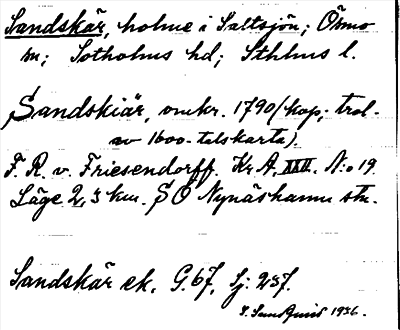 Sandskär, holme i Saltsjön; Ösmo
sn; Sotholms hd; Sthlms l.
Sandskiär, omkr. 1790 (kop; trol.
av 1600-talskarta).
F. R. v. Friesendorff. Kr. A. XXII. N:o 19
Läge 2,3 km. SO Nynäshamn stn.
Sandskär ek. G. 67, Sj. 237.
1936.